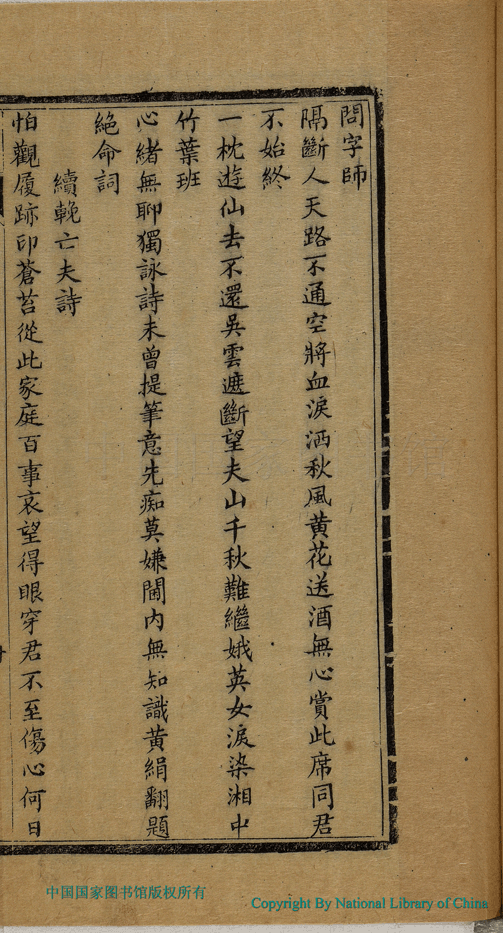 問字師
隔斷人天路不通空將血淚洒秋風黄花送酒無心賞此席同君
不始終
一枕遊仙去不還吳雲遮斷望夫山千秋難繼娥英女淚染湘中
竹葉班
心緒無聊獨詠詩未曾提筆意先痴莫嫌閫內無知識黄絹翻題
絕命詞
續輓亡夫詩
怕觀履跡印蒼苔從此家庭百事哀望得眼穿君不至傷心何日
中国国家图书馆版权所有
Copyright By National Library of China